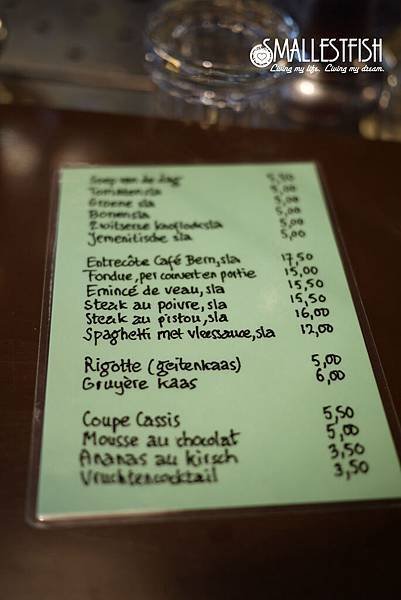 SMALLESTFISH
Living my life. Living my dream.
Soep van de dag 5,50
Tomatensla 5,00
Groene sla 5,00
Bonensla 5,00
Zwitserse knoflooksla 5,00
Jemenitische sla 5,00
Entrecôte Café Bern, sla 17,50
Fondue, per couvert en portie 15,00
Emincé de veau, sla 15,50
Steak au poivre, sla 15,50
Steak au pistou, sla 16,00
Spaghetti met vleessauce, sla 12,00
Rigotte (geitenkaas) 5,00
Gruyère kaas 6,00
Coupe Cassis 5,50
Mousse au chocolat 5,00
Ananas au kirsch 3,50
Vruchtencocktail 3,50